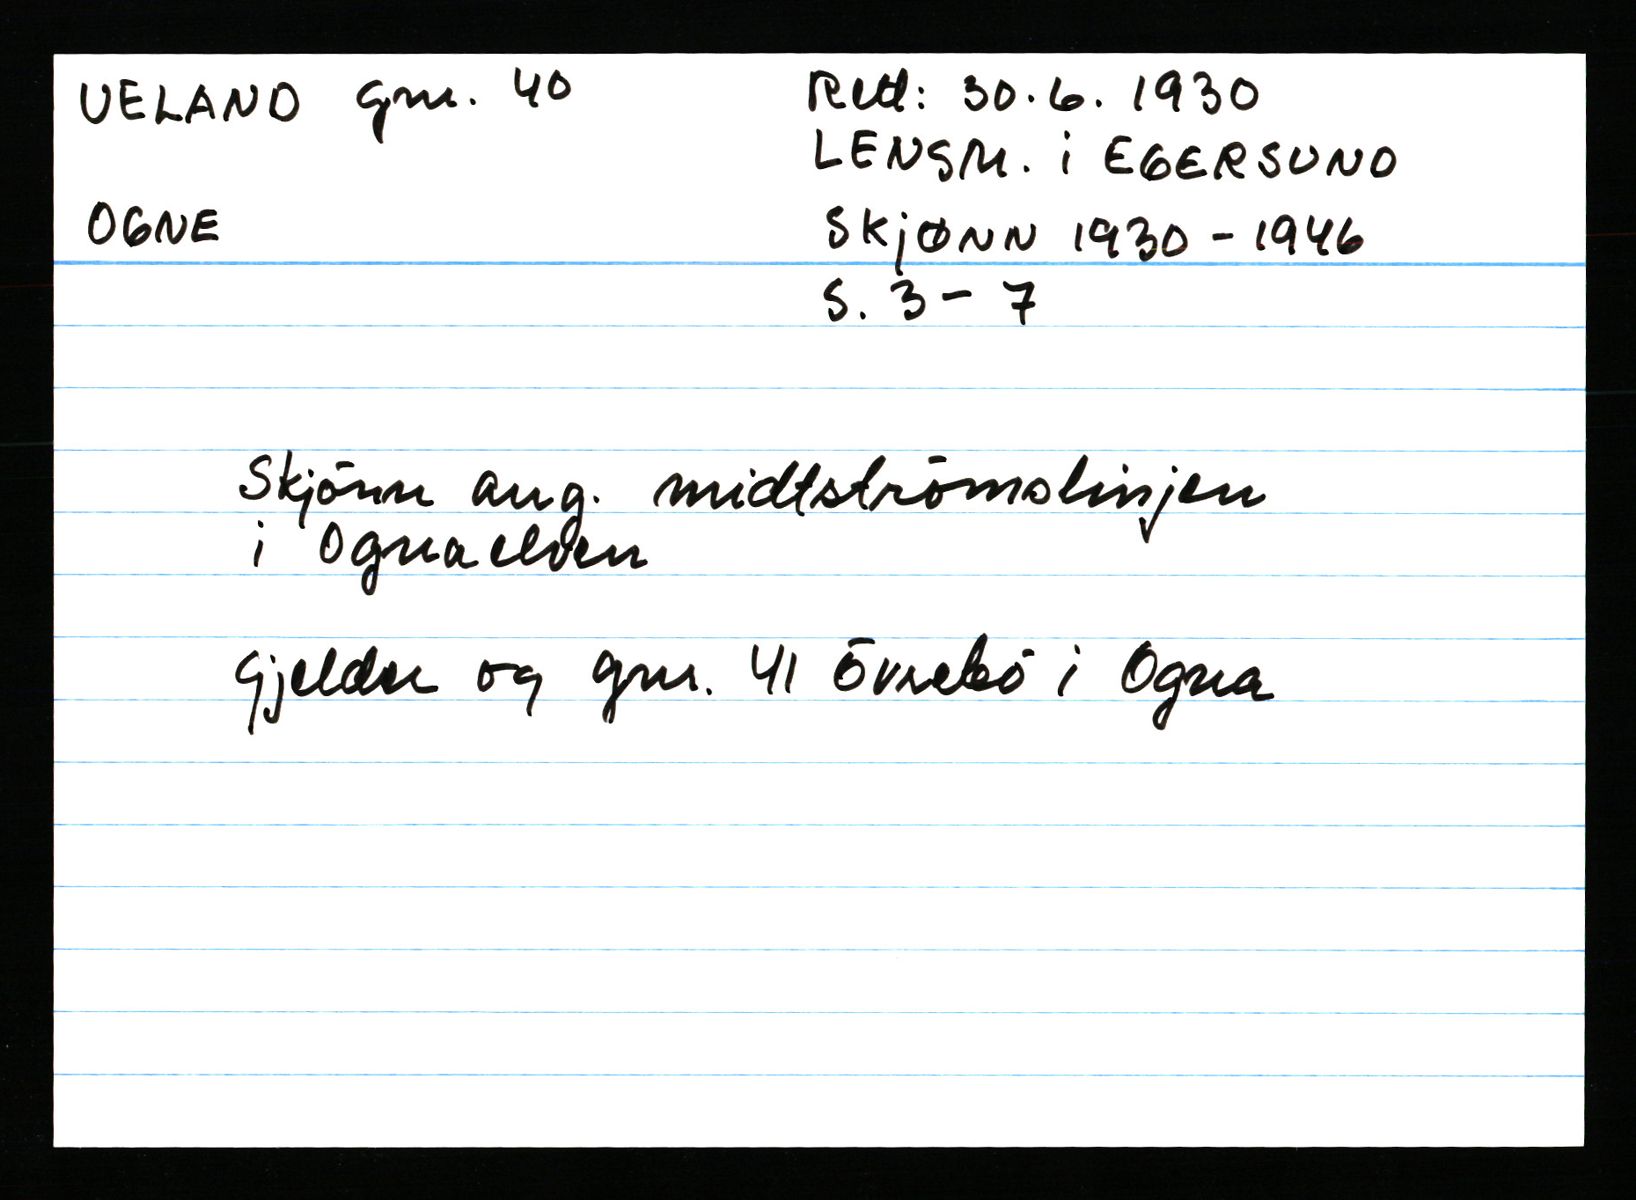 UELAND gnr. 40
OGNE
Retl: 30.6. 1930
LENSM. i EGERSUND
SkjØNN 1930 - 1946
S. 3 - 7
Skjönn ang. midtströmslinjen
i Ognaelven
Gjelder og gnr. 41 Övrebö i Ogna